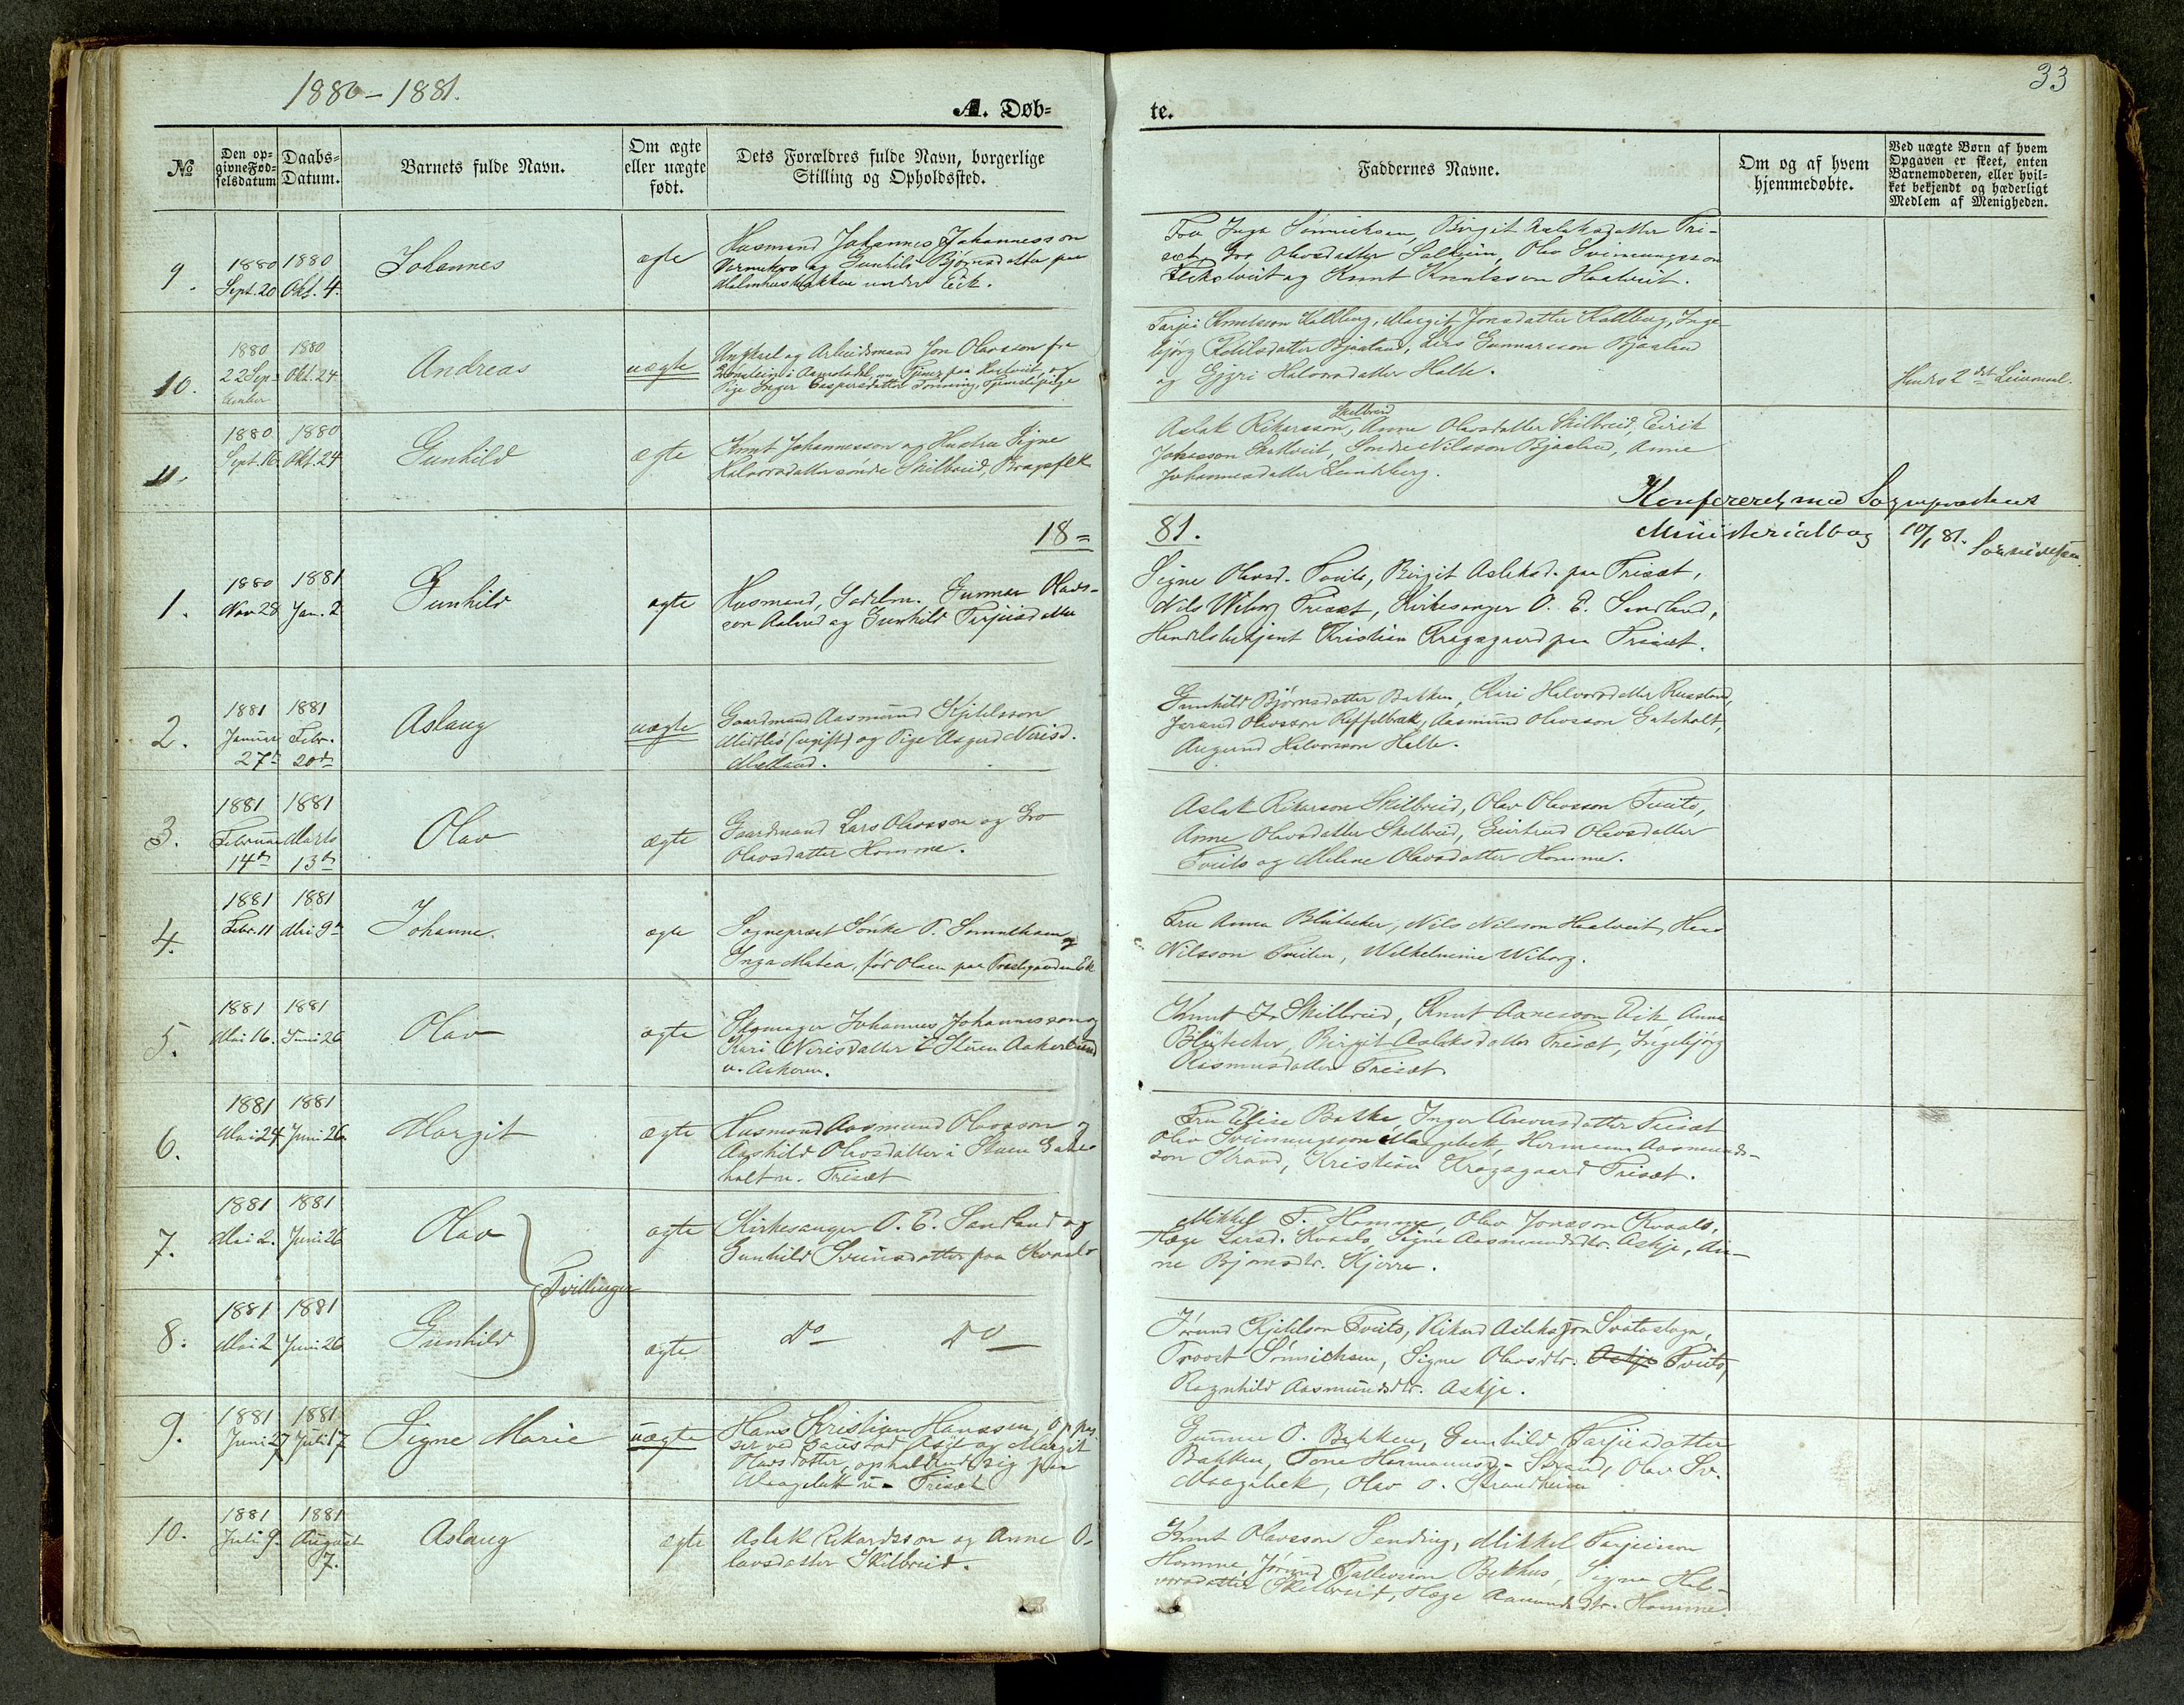 1880-1881.
33
A. Døb-
te.
No
Den op-
givne Fød-
selsdatum
Daabs-
Datum.
Barnets fulde Navn.
Om ægte
eller uægte
født.
Dets Forældres fulde Navn, borgerlige
Stilling og Opholdssted.
Faddernes Navne.
Om og af hvem
hjemmedøbte.
Ved uægte Børn af hvem
Opgaven er skeet, enten
Barnemoderen, eller hvil-
ket bekjendt og hæderligt
Medlem af Menigheden.
9.
1880
Sept. 20
1880
Okt. 4.
Johannes
ægte
Husmand Johannes Johannesson
og Gunhild Bjørnsdatter paa
under Eik.
Fru Inga Sönnichsen, Birgit Aslaksdatter Tri-
sæt, Gro Olavsdatter, Olav Sveinungsson
og Knut Knutsson Haatveit.
10.
1880
22 Sep-
tember
1880
Okt. 24
Andreas
uægte
Ungkarl og Arbeidsmand Jon Olavsson fra
i
Pige Inger Caspersdatter
Tarjei Knutsson Kallberg, Margit Jonsdatter Kallberg, Inge-
björg Kitilsdatter Bjaaland, Lars Gunnarsson Bjaaland
og Halvorsdatter Halte.
Hendes 2det Leiermaal.
11.
1880
Sept. 16
1880
Okt. 24
Gunhild
ægte
Knut Johannesson og Hustru Signe
Halvorsdatter søndre Skilbreid,
Aslak Rikarsson Skilbreid, Anne Olavsdatter Skilbreid, Eirik
Johnsson, Sondre Nilsson Bjaaland, Anne
Johannesdatter Lundeberg.
Konfereret med Sognepræstens
Ministerialbog 10/1 81. Sønnichsen
18=
81.
1.
1880
Nov. 28
1881
Jan. 2
Gunhild
ægte
Husmand, Sadelm. Gunnar Olavs-
son og Gunhild Tarjeisdatter
Signe Olavsd. Tveito, Birgit Aslaksd. paa Trisæt,
Nils Wiborg Trisæt, Kirkesanger O. E. Sandland,
Handelsbetjent Kristian Kragsgaard paa Trisæt.
2.
1881
Januar
27de
1881
Febr.
20de
Aslaug
uægte
Gaardmand Aasmund Kjitilsson
Midtbö (ugift) og Pige Asgerd Nerisd.
Gunhild Bjørnsdatter Bakken, Kari Halvorsdatter Rusaland,
Olavsson, Aasmund Olavsson Gateholt,
Halvorsson Halte.
3.
1881
Februar
14de
1881
Marts
13de
Olav
ægte
Gaardmand Lars Olavsson og Gro
Olavsdatter Homme.
Aslak Rikarson Skilbreid, Olav Olavsson Tveito,
Anne Olavsdatter Skilbreid, Olavsdatter
Tveito og Olavsdatter Homme.
4.
1881
Febr. 11
1881
Mai 9de
Johanne.
ægte
Sognepræst Sönke P. Sönnichsen og
Inga Matea, fød Olsen paa Præstegaarden Eik
Fru Anna Blütecher, Nils Nilsson Haatveit, Hans
Nilsson Tveiten, Wilhelmine Wiborg.
5.
1881
Mai 16.
1881
Juni 26
Olav
ægte
Skomager Johannes Johannesson og
Kari Nerisdatter i Stuen Aakerlund
u. Aakeren.
Knut J. Skilbreid, Knut Aanesson Eik, Anna
Blütecher, Birgit Aslaksdatter Trisæt, Ingebjörg
Rasmusdatter Trisæt.
6.
1881
Mai 24
1881
Juni 26
Margit
ægte
Husmand Aasmund Olavsson og
Aashild Olavsdatter i Stuen Gate-
holt u. Trisæt
Fru Elise Bakke, Inger Anversdatter Trisæt
Olav Sveinungsson Maagebæk, Hermann Aasmunds-
son Strand, Kristian Kragsgaard Trisæt.
7.
1881
Mai 2.
1881
Juni 26
Olav
ægte
Kirkesanger O. E. Sandland og
Gunhild Sveinsdatter paa Kvaale
Tvillinger
Mikkel T. Homme, Olav Jonsson Kvaale,
Hæge Larsd. Kvaale, Signe Aasmundsdtr. Askje, An-
ne Bjørnsdtr. Kjerre.
8.
1881
Mai 2
1881
Juni 26
Gunhild
ægte
Do Do
Jörund Kjitilson Tveito, Rikard Aslakson,
Provst Sönnichsen, Signe Olavsdtr. Askje Tveito,
Ragnhild Aasmundsdtr. Askje.
9.
1881
Juni 27
1881
Juli 17
Signe Marie
uægte
Hans Kristian Hanssen, oppas-
ser ved Asyl og Margit
Olavsdatter, opholdende sig paa
Maagebæk u. Trisæt
Gunnar O. Bakken, Gunhild Tarjeisdatter
Bakken, Tone Hermannsd. Strand, Olav Sv.
Maagebek, Olav O. Strandheim
10.
1881
Juli 9.
1881
August
7.
Aslaug
ægte
Aslak Rikardsson og Anne O-
lavsdatter Skilbreid.
Knut Olavsson Sending, Mikkel Tarjeisson
Homme, Jörund Tallevsson Bekhus, Signe Hal-
vorsdatter Skilbreid, Hæge Aamundsdtr. Homme.